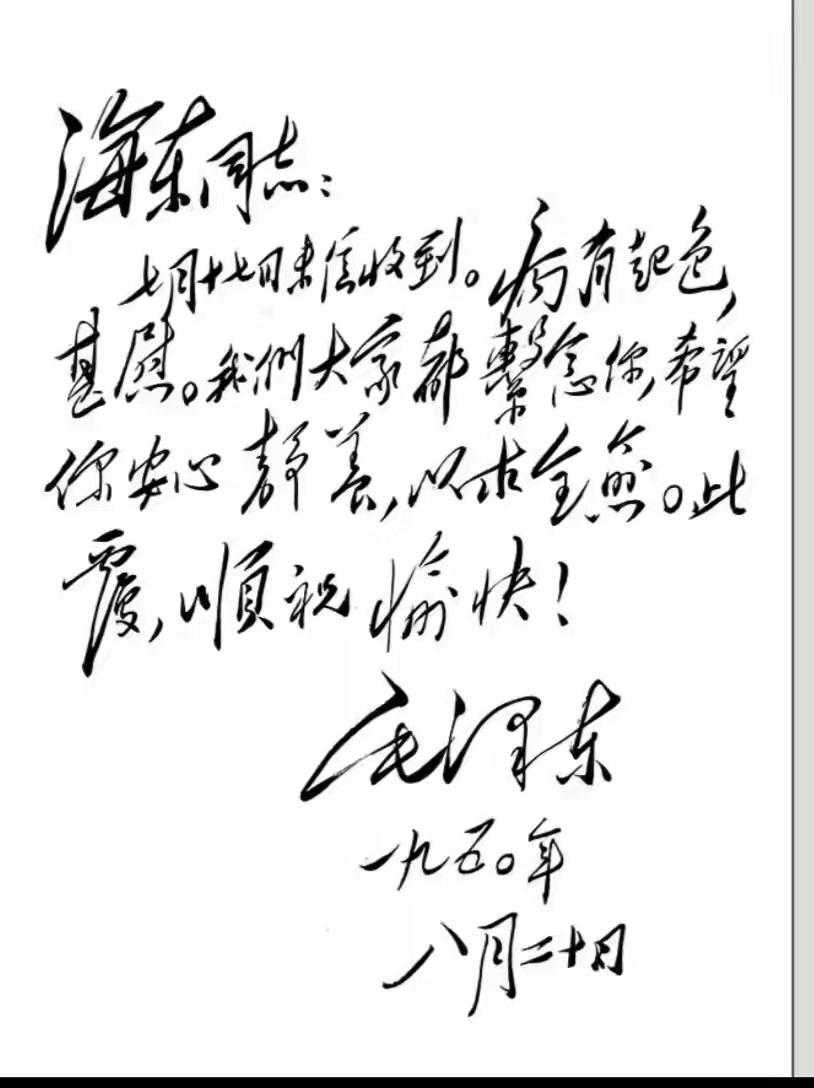 海东同志：
七月十七日来信收到。病有起色，
甚慰。我們大家都繫念你，希望
你安心静養，以求全愈。此
覆，順祝愉快！
毛泽东
一九五〇年
八月二十日